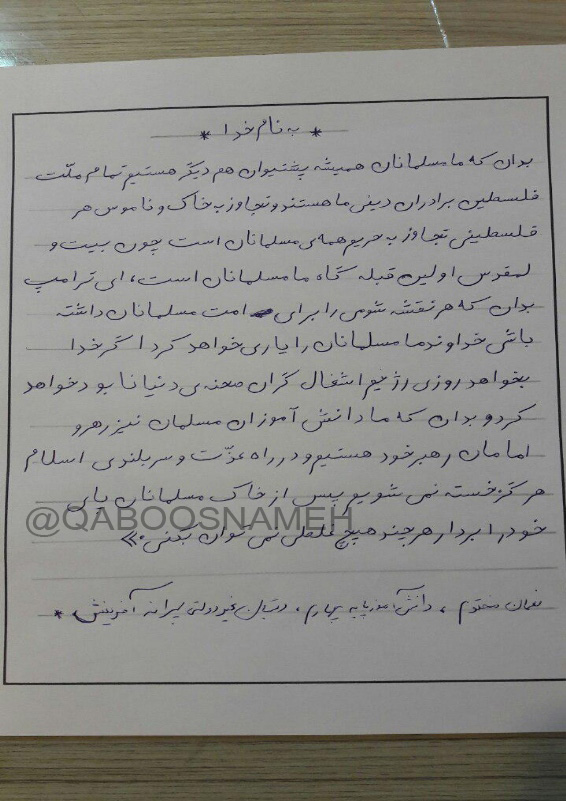 * به نام خدا *
بدان که ما مسلمانان همیشه پشتیوان هم دیگر هستیم تمام ملّت
فلسطین برادران دینی ما هستند و تجاوز به خاک و ناموس هر
فلسطینی تجاوز به حریم همه ی مسلمانان است چون بیت و
لمقدس اولین قبله گاه ما مسلمانان است، ای ترامپ
بدان که هر نقشه شومی را برای امت مسلمانان داشته
باشی خداوند ما مسلمانان را یاری خواهد کرد اگر خدا
بخواهد روزی رژیم اشغال گران صحنه ی دنیا نابود خواهد
کرد و بدان که ما دانش آموزان مسلمان نیز رهرو
امامان رهبر خود هستیم و در راه عزّت و سربلندی اسلام
هرگز خسته نمی شویم پس از خاک مسلمانان پای
@QABOOSNAMEH
خود را بردار هر چند هیچ غلطی نمی توان بکنی.»
مختوم ، دانش آموز پایه چهارم ، دبستان غیر دولتی پسرانه آفرینش *